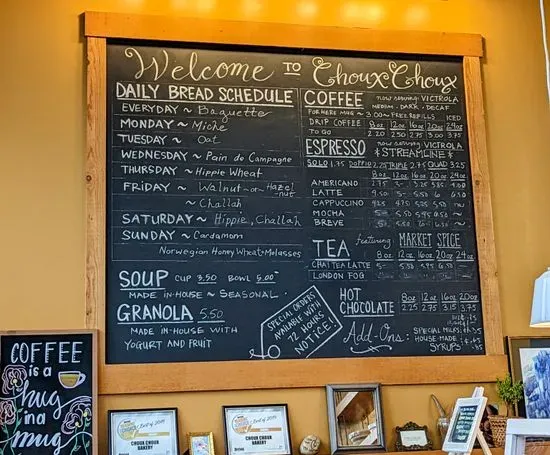 Welcome TO ChouxChoux
DAILY BREAD SCHEDULE
EVERYDAY ~ Baguette
MONDAY ~ Miche
TUESDAY ~ Oat
WEDNESDAY ~ Pain de Campagne
THURSDAY ~ Hippie Wheat
FRIDAY ~ Walnut -or- Hazelnut
~ Challah
SATURDAY ~ Hippie, Challah
SUNDAY ~ Cardamom
Norwegian Honey Wheat & Molasses
SOUP CUP 3.50 BOWL 5.00
MADE IN-HOUSE ~ SEASONAL
GRANOLA 5.50
MADE IN-HOUSE WITH
YOGURT AND FRUIT
SPECIAL ORDERS
AVAILABLE WITH
72 HOURS
NOTICE!
COFFEE now serving: VICTROLA
MEDIUM - DARK - DECAF
FOR HERE MUG ~ 3.00 ~ FREE REFILLS ICED
DRIP COFFEE 8oz 12oz 16oz 20oz 24oz
TO GO 2.20 2.50 2.75 3.00 3.75
ESPRESSO now serving VICTROLA
* STREAMLINE *
SOLO 1.75 DOPPIO 2.25 TRIPLE 2.75 QUAD 3.25
8oz 12oz 16oz 20oz 24oz
AMERICANO
LATTE
CAPPUCCINO
MOCHA
BREVE
TEA featuring MARKET SPICE
8oz 12oz 16oz 20oz 24oz
CHAI TEA LATTE
LONDON FOG
HOT CHOCOLATE 8oz 12oz 16oz 20oz
2.25 2.75 3.15 3.75
Add-Ons:
SPECIAL MILKS
HOUSE MADE
SYRUPS
COFFEE
is a
hug
in a
mug
Best of 2019
CHOUX CHOUX
BAKERY
Best of 2019
CHOUX CHOUX
BAKERY